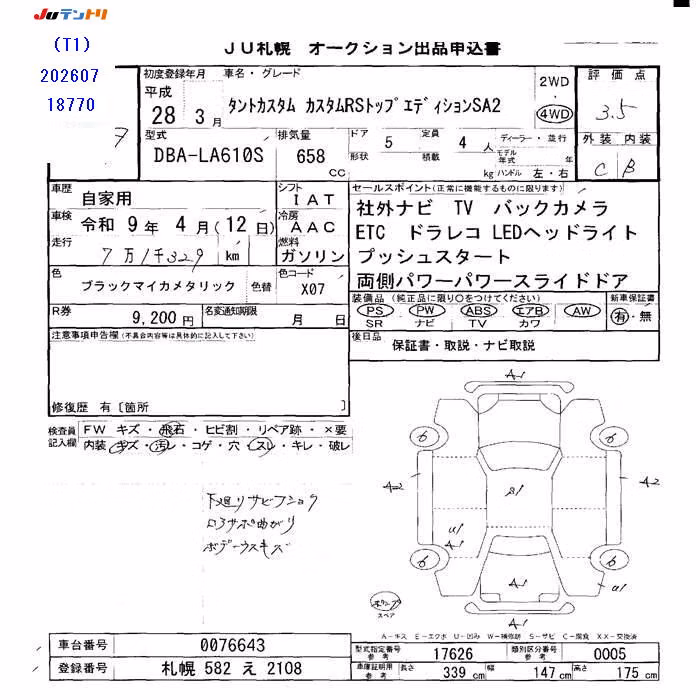 JUテントリ
(T1)
202607
18770
7
JU札幌 オークション出品申込書
初度登録年月 車名・グレード
平成
28 3月
タントカスタム カスタムRSトップエディションSA2
2WD
・
4WD
評価点
3.5
外装 内装
C B
型式
DBA-LA610S
排気量
658
CC
ドア
形状
5
定員
積載
4 人
kg
ディーラー・並行
モデル年式 年
ハンドル 左・右
車歴
自家用
車検
令和 9年 4月(12日)
走行
7万1千329 km
シフト
IAT
冷房
AAC
燃料
ガソリン
セールスポイント(正常に機能するものに限ります)
社外ナビ TV バックカメラ
ETC ドラレコ LEDヘッドライト
プッシュスタート
両側パワーパワースライドドア
色
ブラックマイカメタリック 色替
色コード
X07
R券
9,200円
名変通知期限
月 日
装備品 (純正品に限り○をつけてください)
PS PW ABS エアB AW
SR ナビ TV カワ
新車保証書
有・無
注意事項申告欄(不具合内容等は具体的に記入して下さい)
後日品
保証書・取説・ナビ取説
修復歴 有〔箇所 〕
検査員記入欄
FW キズ・飛石・ヒビ割・リペア跡・×要
内装・キズ・汚レ・コゲ・穴・スレ・キレ・破レ
下廻りサビフショク
ロアサポ曲がり
ボデーウスキズ
A1
6 6
A2 A2
S1
U1
A1
6 6
A1
U1
A1
スペア
A-キズ E-エクボ U-凹み W-補修跡 S-サビ C-腐食 XX-交換済
車台番号
0076643
登録番号
札幌 582 え 2108
型式指定番号
参考
17626
類別区分番号
参考
0005
車庫証明用
参考
長さ 339 cm 幅 147 cm 高さ 175 cm